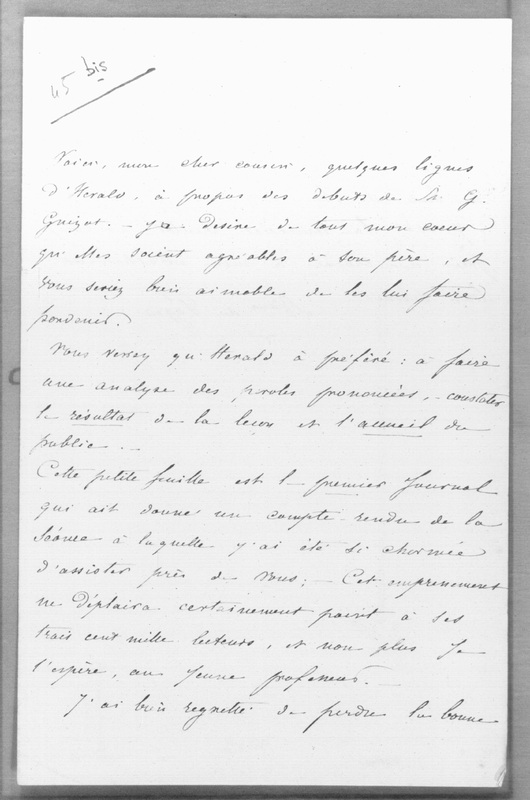 45 bis
Voici, mon cher cousin, quelques lignes
d'Herald, à propos des debuts de M. G.
Guizot. - Je desire de tout mon coeur
qu'elles soient agréables à son père, et
vous seriez bien aimable de les lui faire
parvenir.
Vous verrez qu'Herald à préféré : à faire
une analyse des proles prononcées, - constater
le résultat de la leçon et l'accueil du
public. -
Cette petite feuille est le premier Journal
qui ait donné un compte-rendu de la
Séance à laquelle j'ai été si charmée
d'assister près de vous ; - Cet empressement
ne déplaira certainement point à ses
trois cent mille lecteurs, et non plus Je
l'espère, au jeune professeur. -
J'ai bien regretté de perdre la bonne